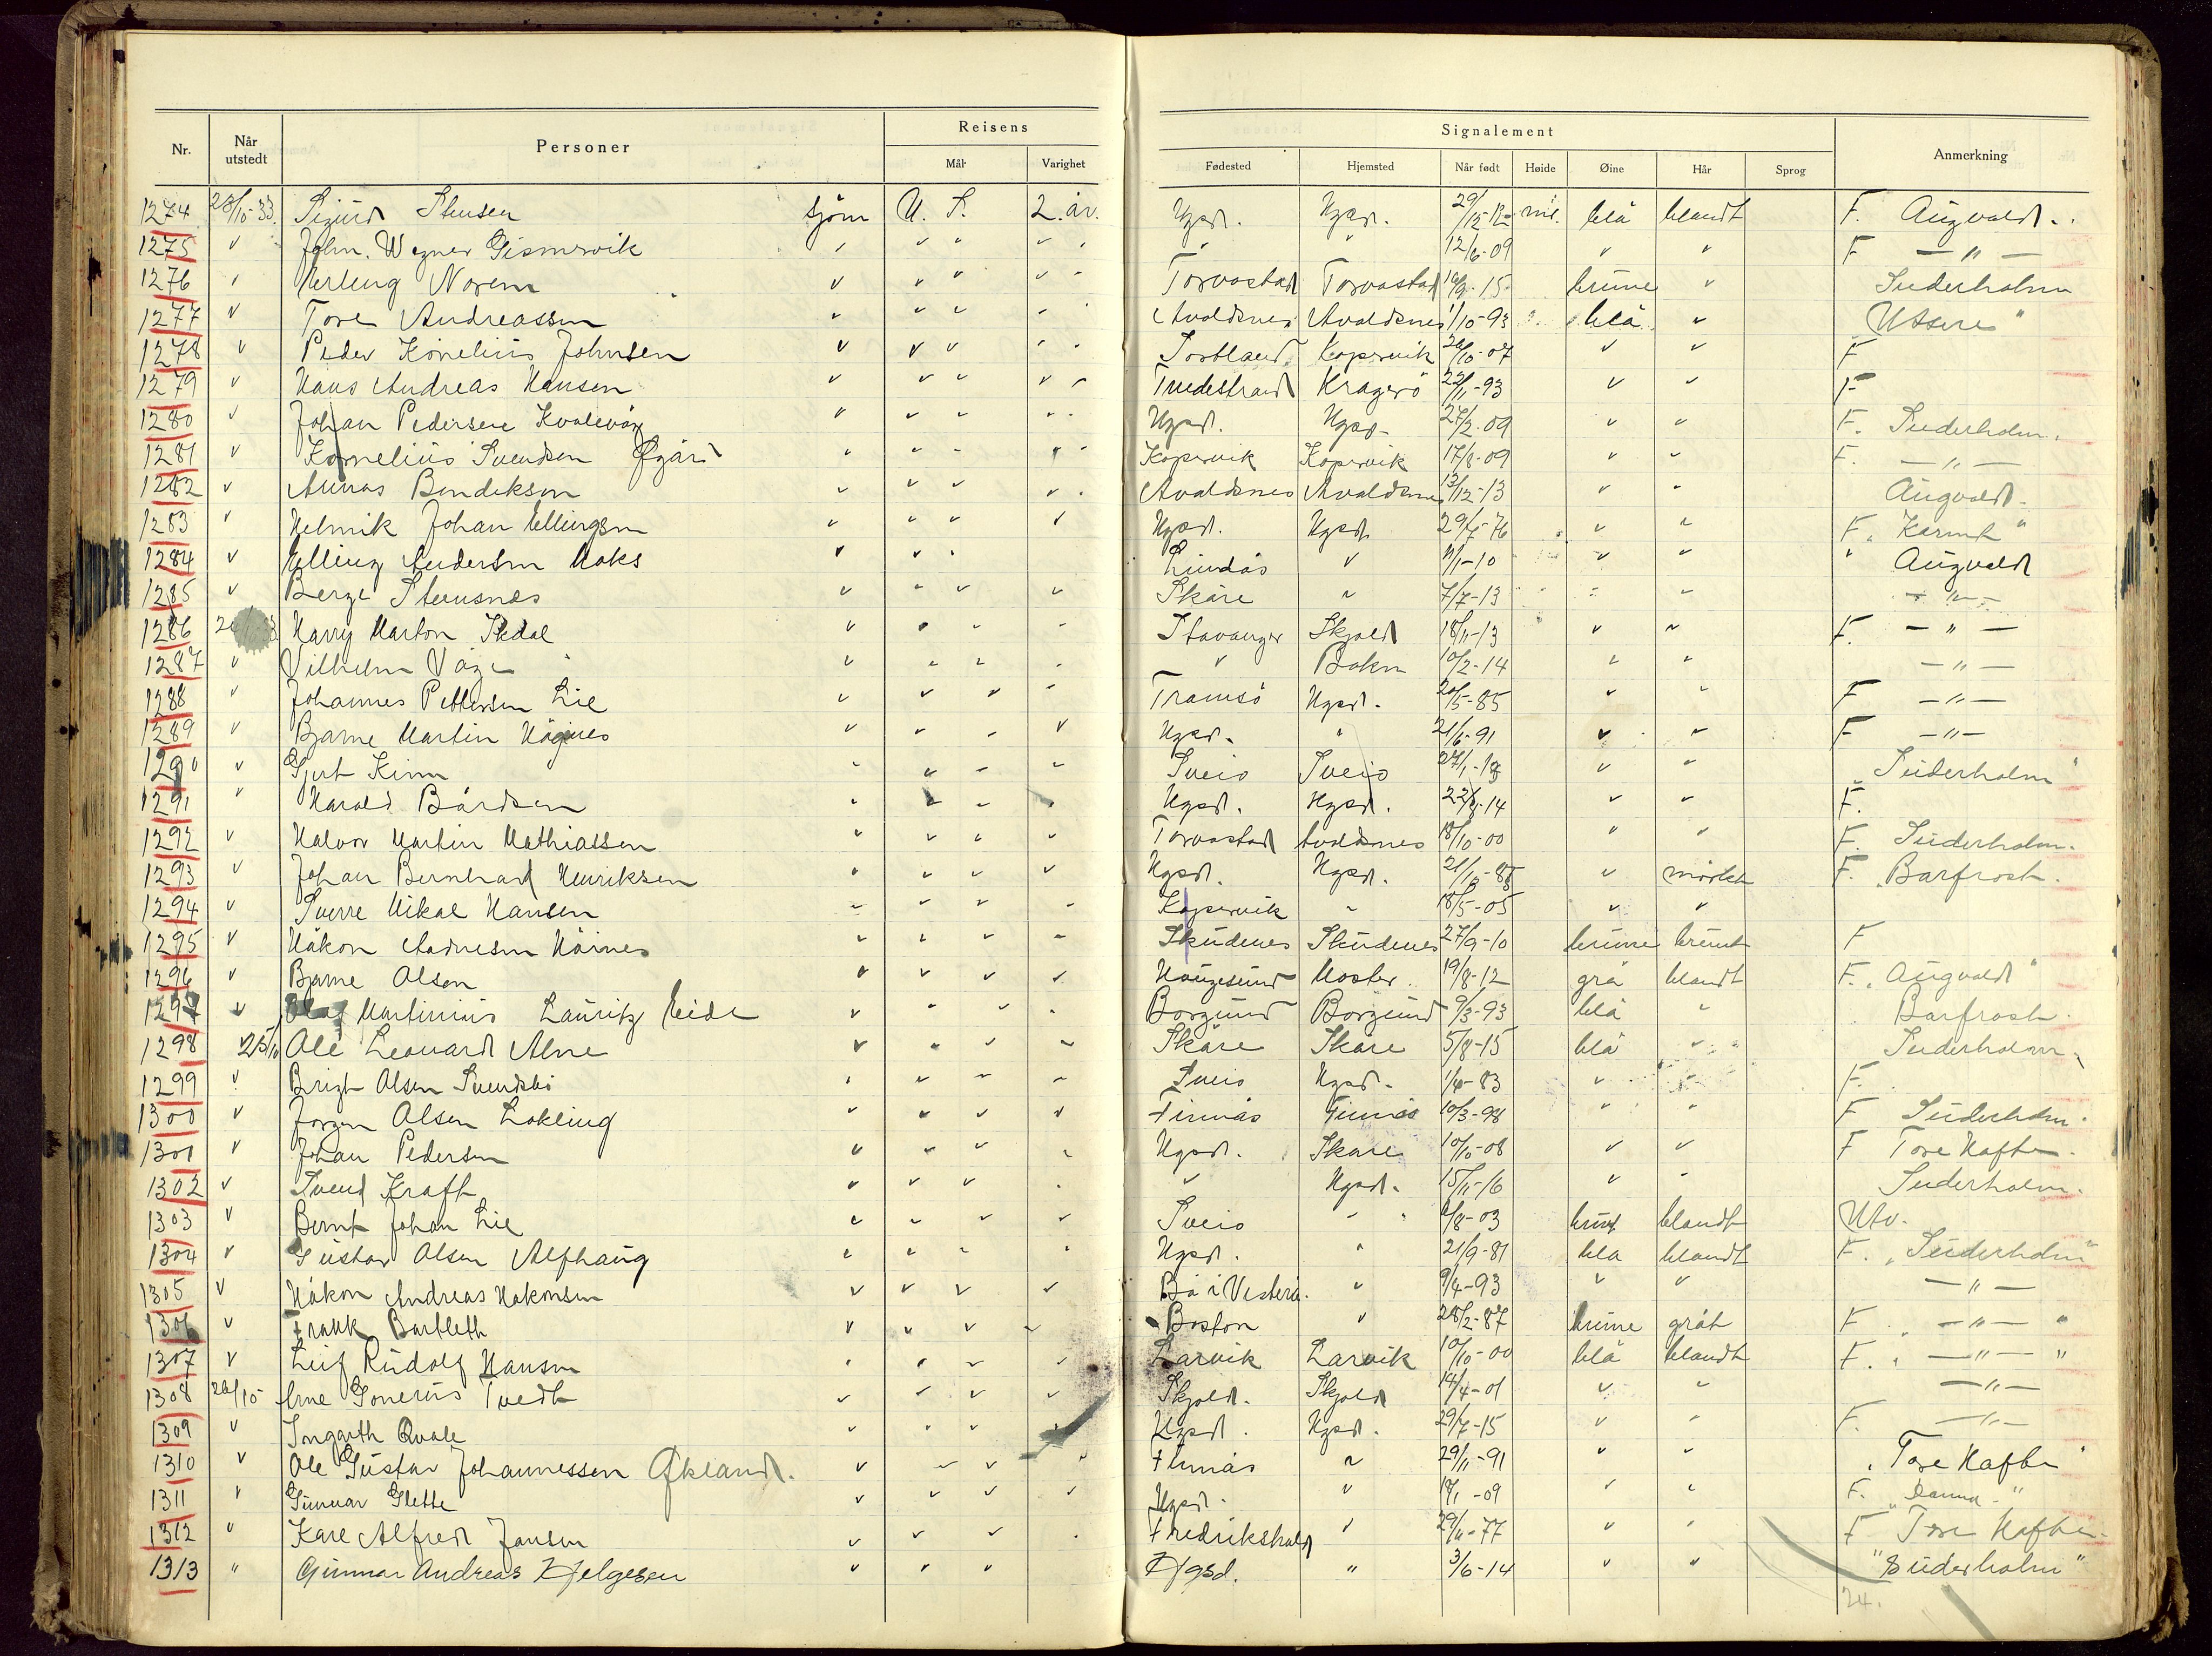 Nr. Når utstedt Personer Reisens Mål Varighet Signalement Fødested Hjemsted Når født Høide Øine Hår Sprog Anmerkning
1274 28/10-33. Sigurd Stensen sjøm U. S. 2. år. Hgsd. Hgsd. 29/12-12 blå blondt F. Augvald.
1275 " John. Wegner Gismervik " " 12/6-09 " " F — " —
1276 " Erling Norem " Torvastad Torvastad 16/9-15 brune " Suderholm
1277 " Tore Andreassen " Avaldsnes Avaldsnes 1/10-93 blå "
1278 " Peder Kornelius Johnsen " Kopervik 20/10-07 " " F
1279 " Hans Andreas Hansen " Tvedestrand Kragerö 22/11-93 " " F
1280 " Johan Pedersen Kvalevåg " Hgsd. Hgsd. 27/2-09 " " F. Suderholm.
1281 " Kornelius Svendsen Øygård " Kopervik Kopervik 17/8-09 " " F. — " —
1282 " Bendiksen " Avaldsnes Avaldsnes 13/12-13 " " Augvald.
1283 " Helmik Johan Ellingsen " Hgsd. Hgsd. 29/7-76 " " F. "Karmt"
1284 " Elling Andersen Hoks " Lindås " 11/1-10 " " " Augvald
1285 " Berge Stensnes " Skåre " 7/7-13 " " — " —
1286 Harry Marton " Stavanger Skjold 18/11-13 " " F. — " —
1287 " Vilhelm Våge " " Bokn 10/2-14 " " — " —
1288 " Johannes Pettersen Lie " Tromsö Hgsd. 20/5-85 " " F — " —
1289 " Bjarne Martin Högnes " Hgsd. " 21/6-91 " " F — " —
1290 " Gjert Kinn " Sveio Sveio 27/1-18 " " "Suderholm"
1291 " Harald Bårdsen " Hgsd. Hgsd. 22/8-14 " " F.
1292 " Halvor Martin Mathiassen " Torvastad Avaldsnes 18/10-00 " " F. Suderholm.
1293 " Johan Bernhard Henriksen " Hgsd. Hgsd. " mörkt F. "Barfrost.
1294 " Sverre Mikal Hansen " Kopervik " 18/5-05 " "
1295 " Håkon Aadnesen Håvnes " Skudenes Skudenes 27/9-10 brune brunt F
1296 " Bjarne Olsen " Haugesund Moster 19/8-12 grå blondt F. "Augvald"
1297 " Olaf Martinius Lauritz Eide " Borgund Borgund 9/3-93 blå " Barfrost.
1298 25/10 Ole Leonard Alne " Skåre Skåre 5/8-15 blå " Suderholm.
1299 " Brigt Olsen Svendsbö " Sveio Hgsd. 1/6-83 " " F.
1300 " Jorgen Olsen Lokling " Finnås Finnås 10/3-98 " " F Suderholm.
1301 " Johan Pedersen " Hgsd. Skåre 10/10-08 " " F Tore Hafte.
1302 " Svend Kraft " " Hgsd. 15/11-16 " " Suderholm.
1303 " Bernt Johan Lie " Sveio " 6/8-03 brunt blondt Utv.
1304 " Gustav Olsen Alfhaug " Hgsd. " 21/9-81 blå blondt F. "Suderholm"
1305 " Håkon Andreas Hakonsen " Bö i Vesterå. " 9/4-93 " " — " —
1306 " Frank Bartleth " Boston " 28/2-87 brune gråt F " — " — "
1307 " Leif Rudolf Hansen " Larvik Larvik 10/10-00 blå blondt F. " — " — "
1308 26/10 Arne Gonerius Tvedt " Skjold. Skjold 14/4-01 " " — " —
1309 " Ingarth Qvale " Hgsd. Hgsd. 29/7-15 " " F. — " —
1310 " Ole Gustav Johannessen Økland. " Finnås " 29/11-91 " " "Tore Hafte"
1311 " Gunnar Slette " Hgsd. " " " F. "
1312 " Kare Alfred Jansen " Fredrikshald " 29/11-77 " " F Tore Hafte.
1313 " Gunnar Andreas Helgesen " Hgsd. " 3/6-14 " " "Suderholm"
24.